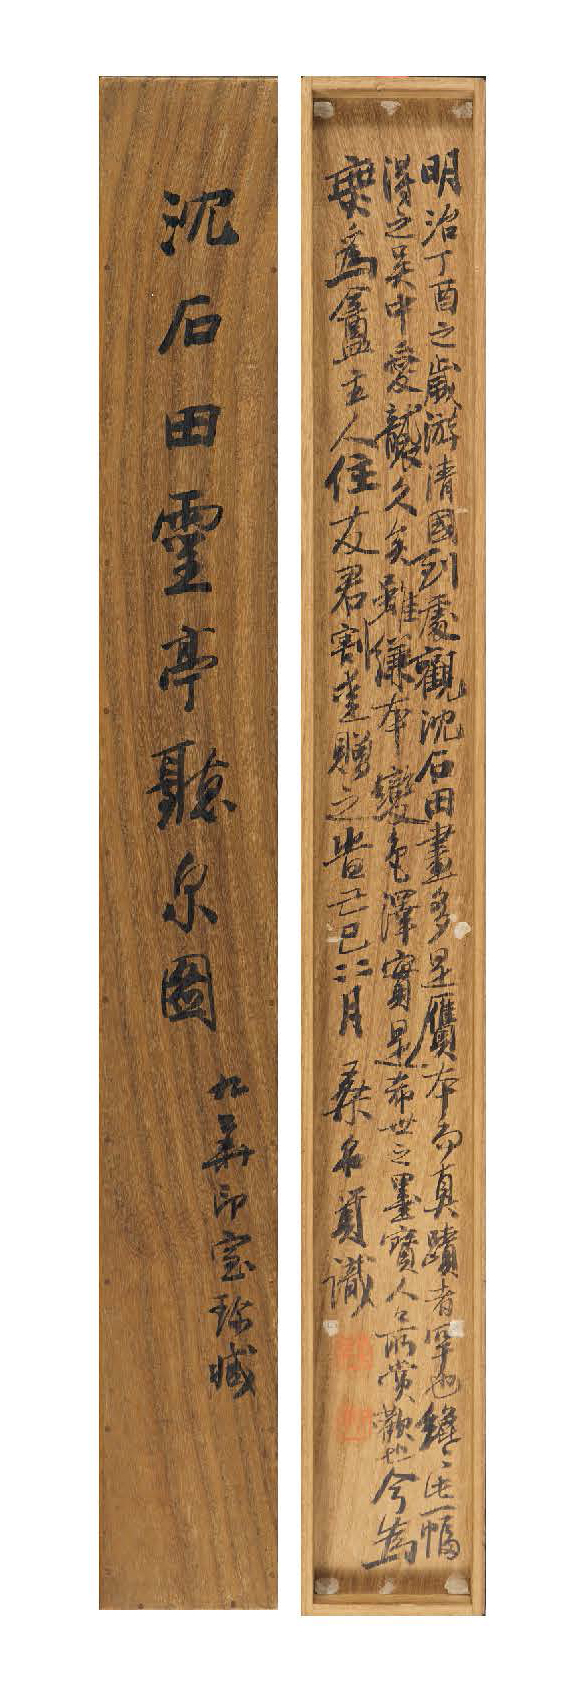 沈石田靈亭聽泉圖
九華印室珍藏
明治丁酉之歲游清國到處觀沈石田畫多是贋本而真蹟者罕也此一幅
得之吳中愛襲久矣雖縑本變色澤實是希世之墨寶人々所賞歡也今為
無為盦主人住友君割愛贈之昔丁巳二月 桑名箕識